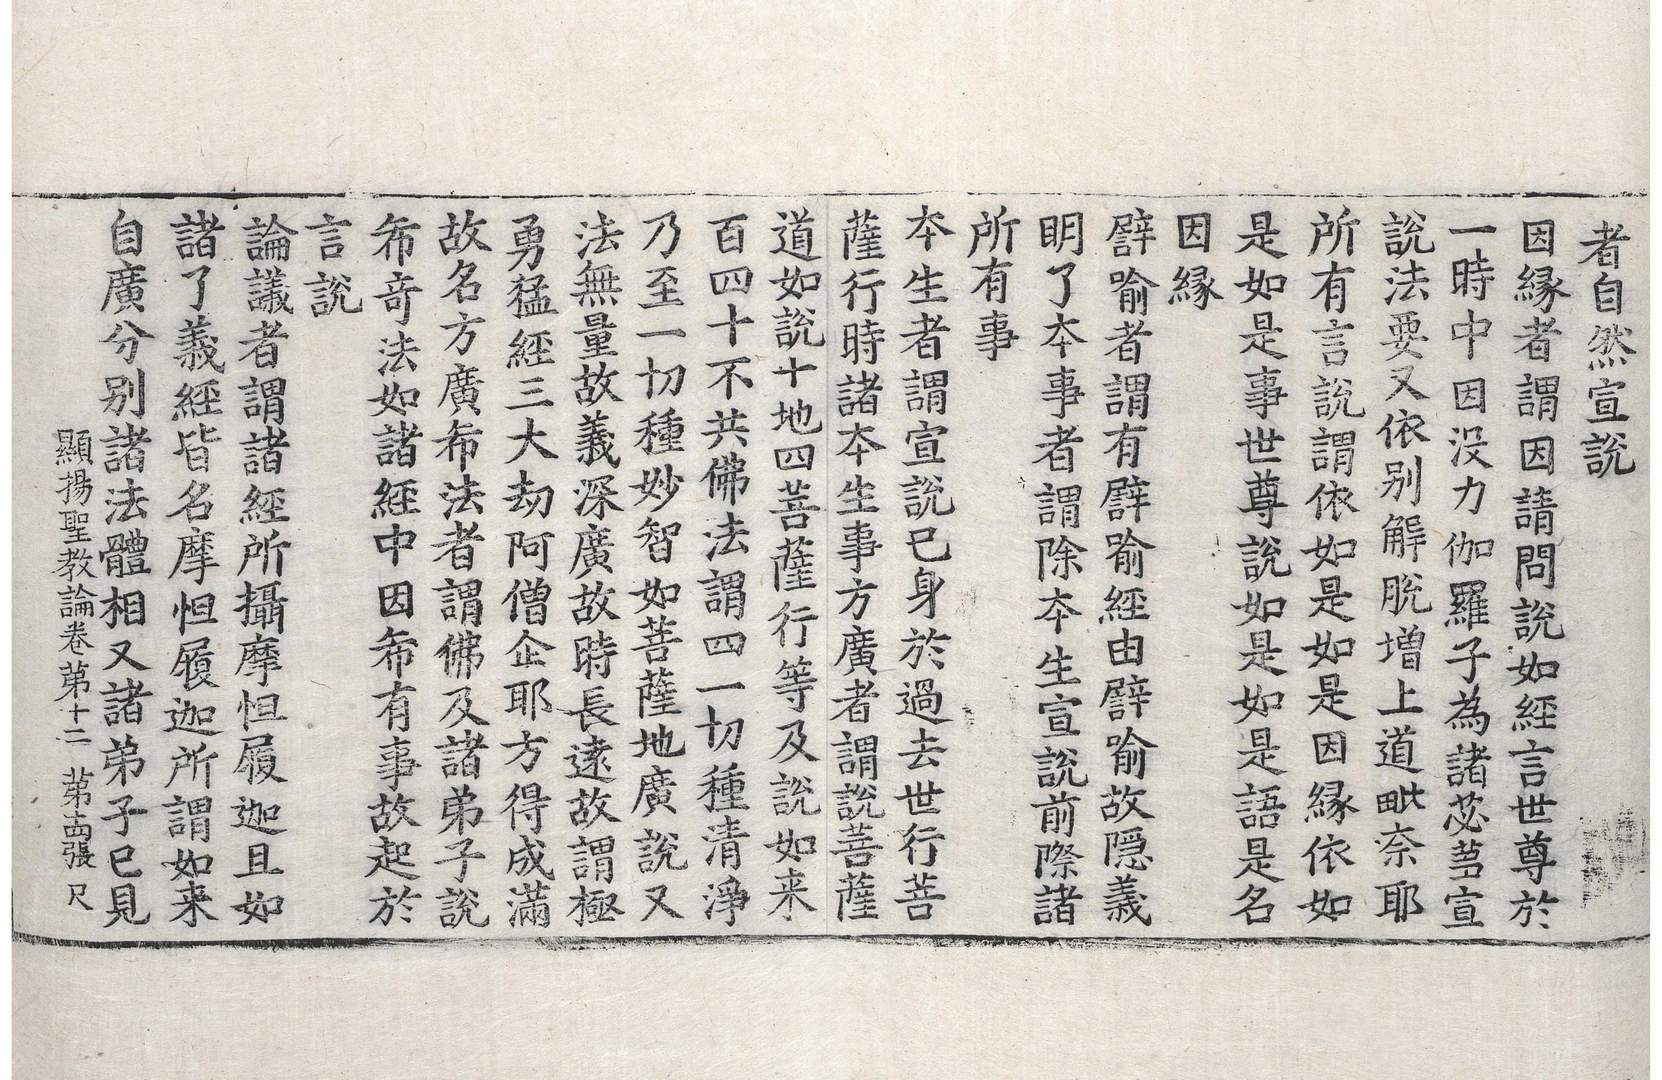 者自然宣説
因縁者謂因請問説如經言世尊於
一時中因没力伽羅子為諸苾芻宣
説法要又依别解脱增上道毗奈耶
所有言説謂依如是如是因縁依如
是如是事世尊説如是如是語是名
因縁
譬喻者謂有譬喻經由譬喻故隱義
明了本事者謂除本生宣説前際諸
所有事
本生者謂宣説已身於過去世行菩
薩行時諸本生事方廣者謂説菩薩
道如説十地四菩薩行等及説如来
百四十不共佛法謂四一切種清淨
乃至一切種妙智如菩薩地廣説又
法無量故義深廣故時長遠故謂極
勇猛經三大劫阿僧企耶方得成滿
故名方廣希法者謂佛及諸弟子説
希竒法如諸經中因希有事故起於
言説
論議者謂諸經所攝摩怛履迦且如
諸了義經皆名摩怛履迦所謂如来
自廣分别諸法體相又諸弟子已見
顯揚聖教論卷第十二 第十四張 尺